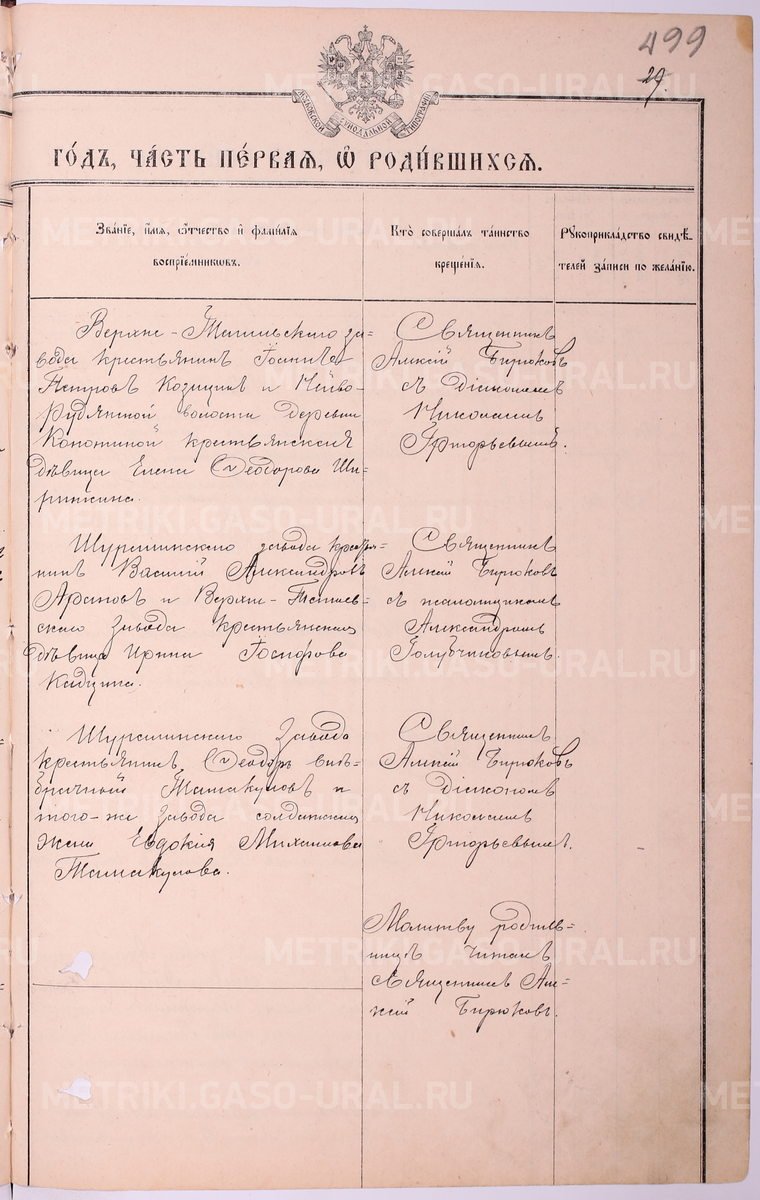 499
29.
МОСКОВСКОЙ СѴНОДАЛЬНОЙ ТИПОГРАФІИ
ГО́ДЪ, ЧА́СТЬ ПЕ́РВАЯ, Ѡ҆ РОДИ́ВШИХСЯ.
Зва́нїе, и҆́мѧ, ѻ҆́тчество и҆ фами́лїѧ
воспрїе́мниковъ.
Кто̀ соверша́лъ та́инство
креще́нїѧ.
Рꙋкоприкла́дство свидѣ́-
телей за́писи по жела́нїю.
Верхне-Тагильскаго за-
вода крестьянинъ Іоаннъ
Петровъ Козицинъ и Нейво-
Рудянской волости деревни
крестьянская
дѣвица Елена Ѳеодорова Ши-
ринкина.
Священникъ
Алексій Бирюковъ
съ діакономъ
Николаемъ
Григорьевымъ.
Шуралинскаго завода кресть-
нинъ Василій Александровъ
Араповъ и Верхне-Тагиль-
скаго завода крестьянская
дѣвица Ирина Іосифова
Священникъ
Алексій Бирюковъ
съ псаломщикомъ
Александромъ
Голубчиковымъ.
Шуралинскаго завода
крестьянинъ Ѳеодоръ внѣ-
брачный Татакуловъ и
того-же завода солдатская
жена Евдокія Михаилова
Татакулова.
Священникъ
Алексій Бирюковъ
съ діакономъ
Николаемъ
Григорьевымъ.
Молитву родиль-
ницѣ читалъ
священникъ Але-
ксій Бирюковъ.
METRIKI.GASO-URAL.RU